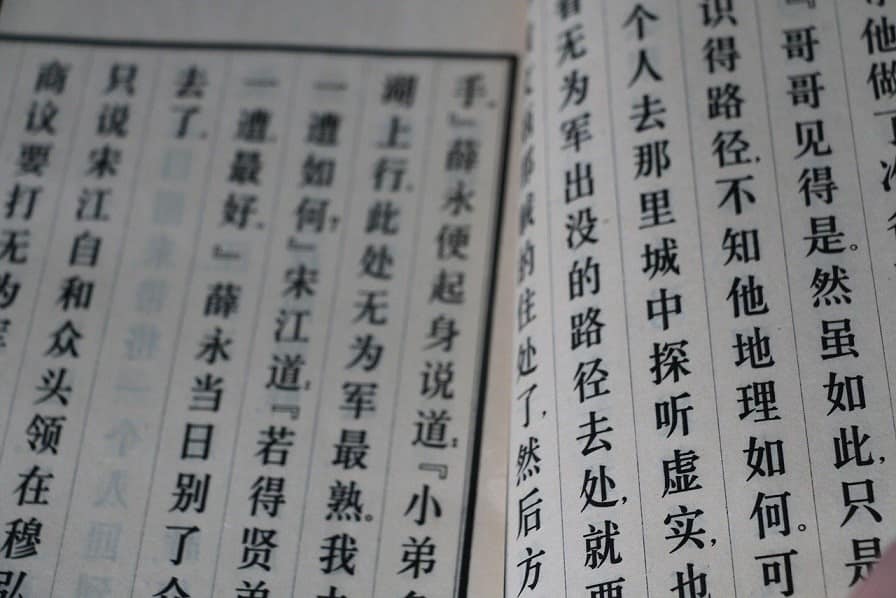 他做了
『哥哥见得是。然虽如此,只是
识得路径,不知他地理如何。可
个人去那里城中探听虚实,也
看无为军出没的路径去处,就要
的住处了,然后方
手。』薛永便起身说道:『小弟
湖上行。此处无为军最熟。我
一遭如何?』宋江道:『若得贤弟
一遭最好。』薛永当日别了
去了。
只说宋江自和众头领在穆弘
商议要打无为军